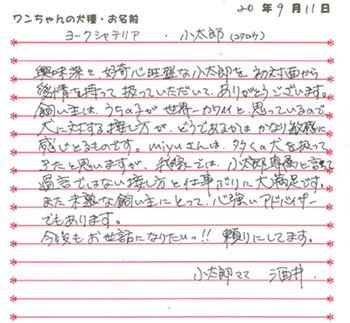 20 年 9 月 11 日
ワンちゃんの犬種・お名前
ヨークシャテリア ・ 小太郎(コタロウ)
興味深々、好奇心旺盛な小太郎を、初対面から
愛情を持って扱っていただいて、ありがとうございます。
飼い主は、うちの子が世界一カワイイと、思っているので
犬に対する接し方が、どうであるかは かなり敏感に
感じとるものです。miyuさんは、多くの犬を扱って
きたと思いますが、我家では、小太郎専属と言っても
過言ではない接し方と仕事ぶりに大満足です。
また未熟な飼い主にとって、心強いアドバイザー
でもあります。
今後もお世話になりたいっ!! 頼りにしてます。
小太郎ママ 酒井.